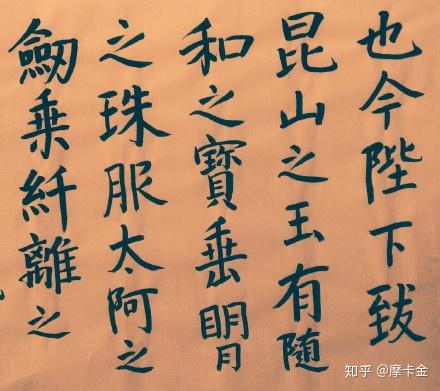 也今陛下致
昆山之玉有隨
和之寶垂明月
之珠服太阿之
劒乗纤離之
知乎 @摩卡金